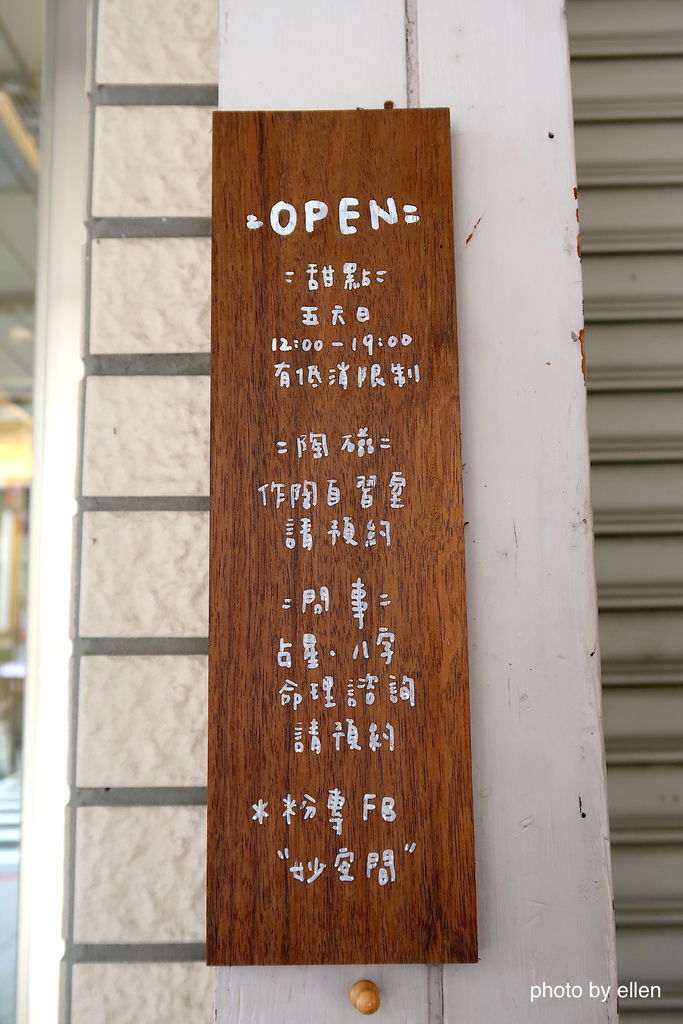 =OPEN=
=甜點=
五六日
12:00-19:00
有低消限制
=陶磁=
作陶自習室
請預約
=問事=
占星·八字
命理諮詢
請預約
*粉專FB
"妙空間"
photo by ellen